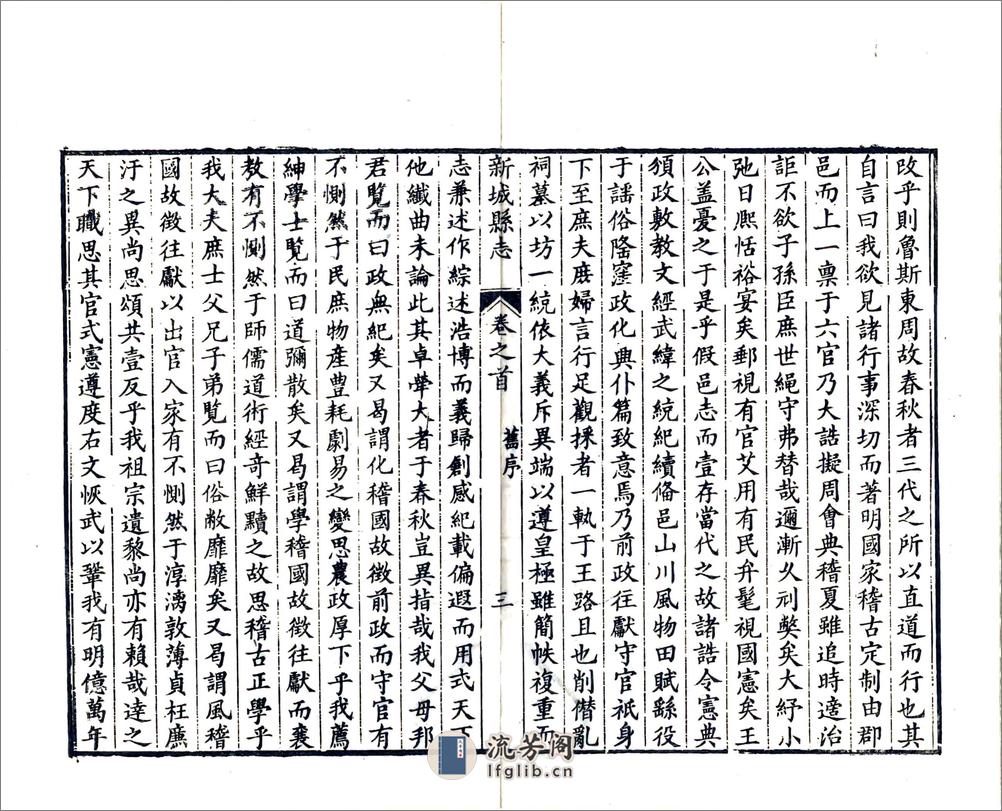 改乎則魯斯東周故春秋者三代之所以直道而行也其
自言曰我欲見諸行事深切而著明國家稽古定制由郡
邑而上一稟于六官乃大誥擬周會典稽夏雖追時適治
詎不欲子孫臣庶世繩守弗替哉邇漸久刓獘矣大紓小
弛日熈恬裕宴矣郵視有官艾用有民弁髦視國憲矣王
公蓋憂之于是乎假邑志而壹存當代之故諸誥令憲典
頒政敷教文經武緯之統紀續俻邑山川風物田賦繇役
于謡俗隆窪政化典仆篇致意焉乃前政往獻守官祇身
下至庶夫庶婦言行足觀採者一軌于王路且也削僭亂
祠墓以坊一統依大義斥異端以遵皇極雖簡帙複重而
新城縣志
卷之首
舊序
三
志兼述作綜述浩博而義歸創感紀載偏遐而用式天下
他纖曲未論此其卓犖大者于春秋豈異指哉我父母邦
君覽而曰政無紀矣又曷謂化稽國故徵前政而守官有
不惻然于民庶物產豊耗劇易之變思農政厚下乎我薦
紳學士覽而曰道彌散矣又曷謂學稽國故徵往獻而襄
教有不惻然于師儒道術經竒鮮黷之故思稽古正學乎
我大夫庶士父兄子弟覽而曰俗敝靡靡矣又曷謂風稽
國故徵往獻以出官入家有不惻然于淳漓敦薄貞枉廉
汙之異尚思頌共壹反乎我祖宗遺黎尚亦有賴哉達之
天下職思其官式憲遵度右文恢武以鞏我有明億萬年
流芳阁
lfglib.cn